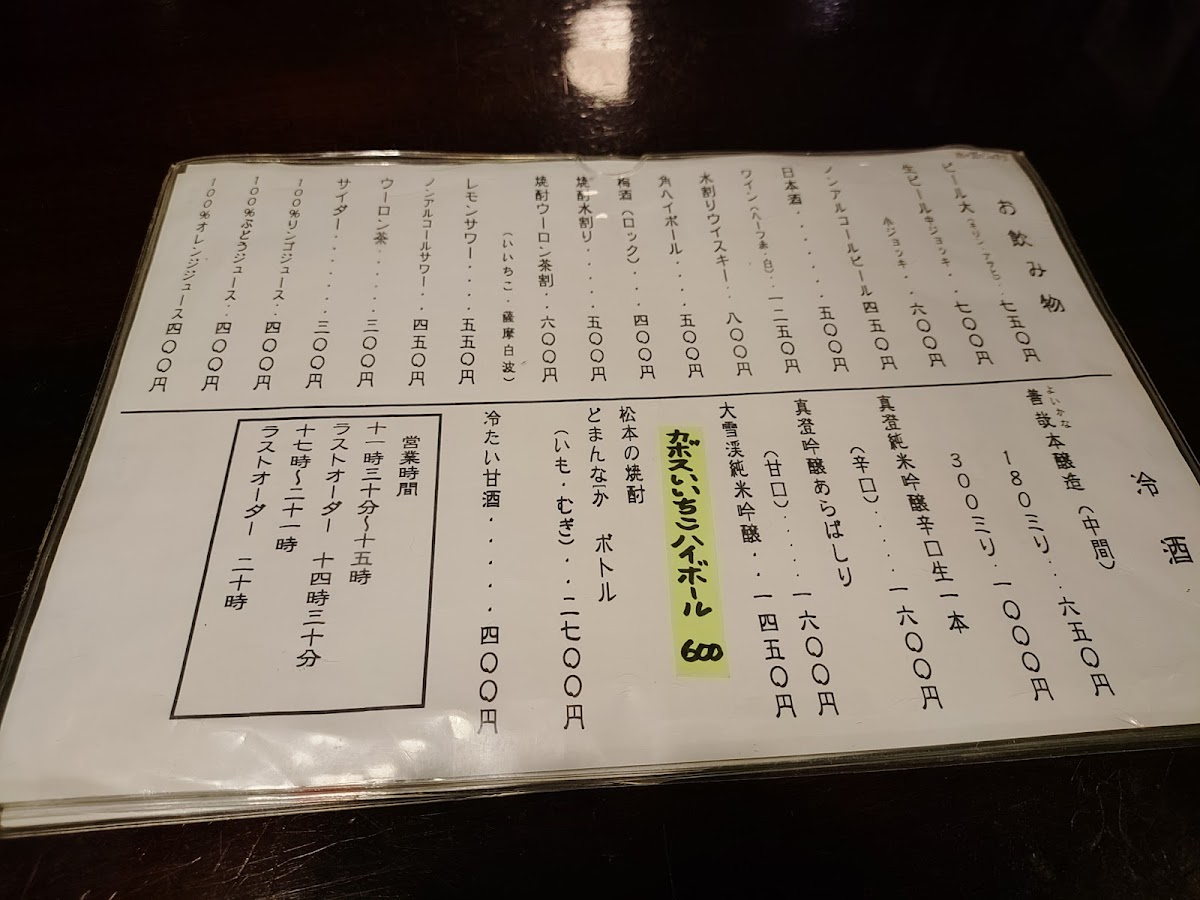 お飲み物
ビール大(キリン、アサヒ)．．七五〇円
生ビール 中ジョッキ．．七〇〇円
小ジョッキ．．六〇〇円
ノンアルコールビール 四五〇円
日本酒．．．．．．五〇〇円
ワイン(ハーフ赤・白)．一二五〇円
水割りウイスキー．．八〇〇円
角ハイボール．．．．五〇〇円
梅酒(ロック)．．．四〇〇円
焼酎水割り．．．．．五〇〇円
焼酎ウーロン茶割．．六〇〇円
(いいちこ・薩摩白波)
レモンサワー．．．．五五〇円
ノンアルコールサワー．．四五〇円
ウーロン茶．．．．．三〇〇円
サイダー．．．．．．三〇〇円
100%リンゴジュース．．四〇〇円
100%ぶどうジュース．．四〇〇円
100%オレンジジュース 四〇〇円
冷酒
よいかな
善哉本醸造(中間)
180ミリ．．．六五〇円
300ミリ．一〇〇〇円
真澄純米吟醸辛口生一本
(辛口)．．．．．一六〇〇円
真澄吟醸あらばしり
(甘口)．．．．．一六〇〇円
大雪渓純米吟醸．．一四五〇円
カボスいいちこハイボール 600
松本の焼酎
とまんなか ボトル
(いも・むぎ)．．二七〇〇円
冷たい甘酒．．．．．四〇〇円
営業時間
十一時三十分～十五時
ラストオーダー 十四時三十分
十七時～二十一時
ラストオーダー 二十時